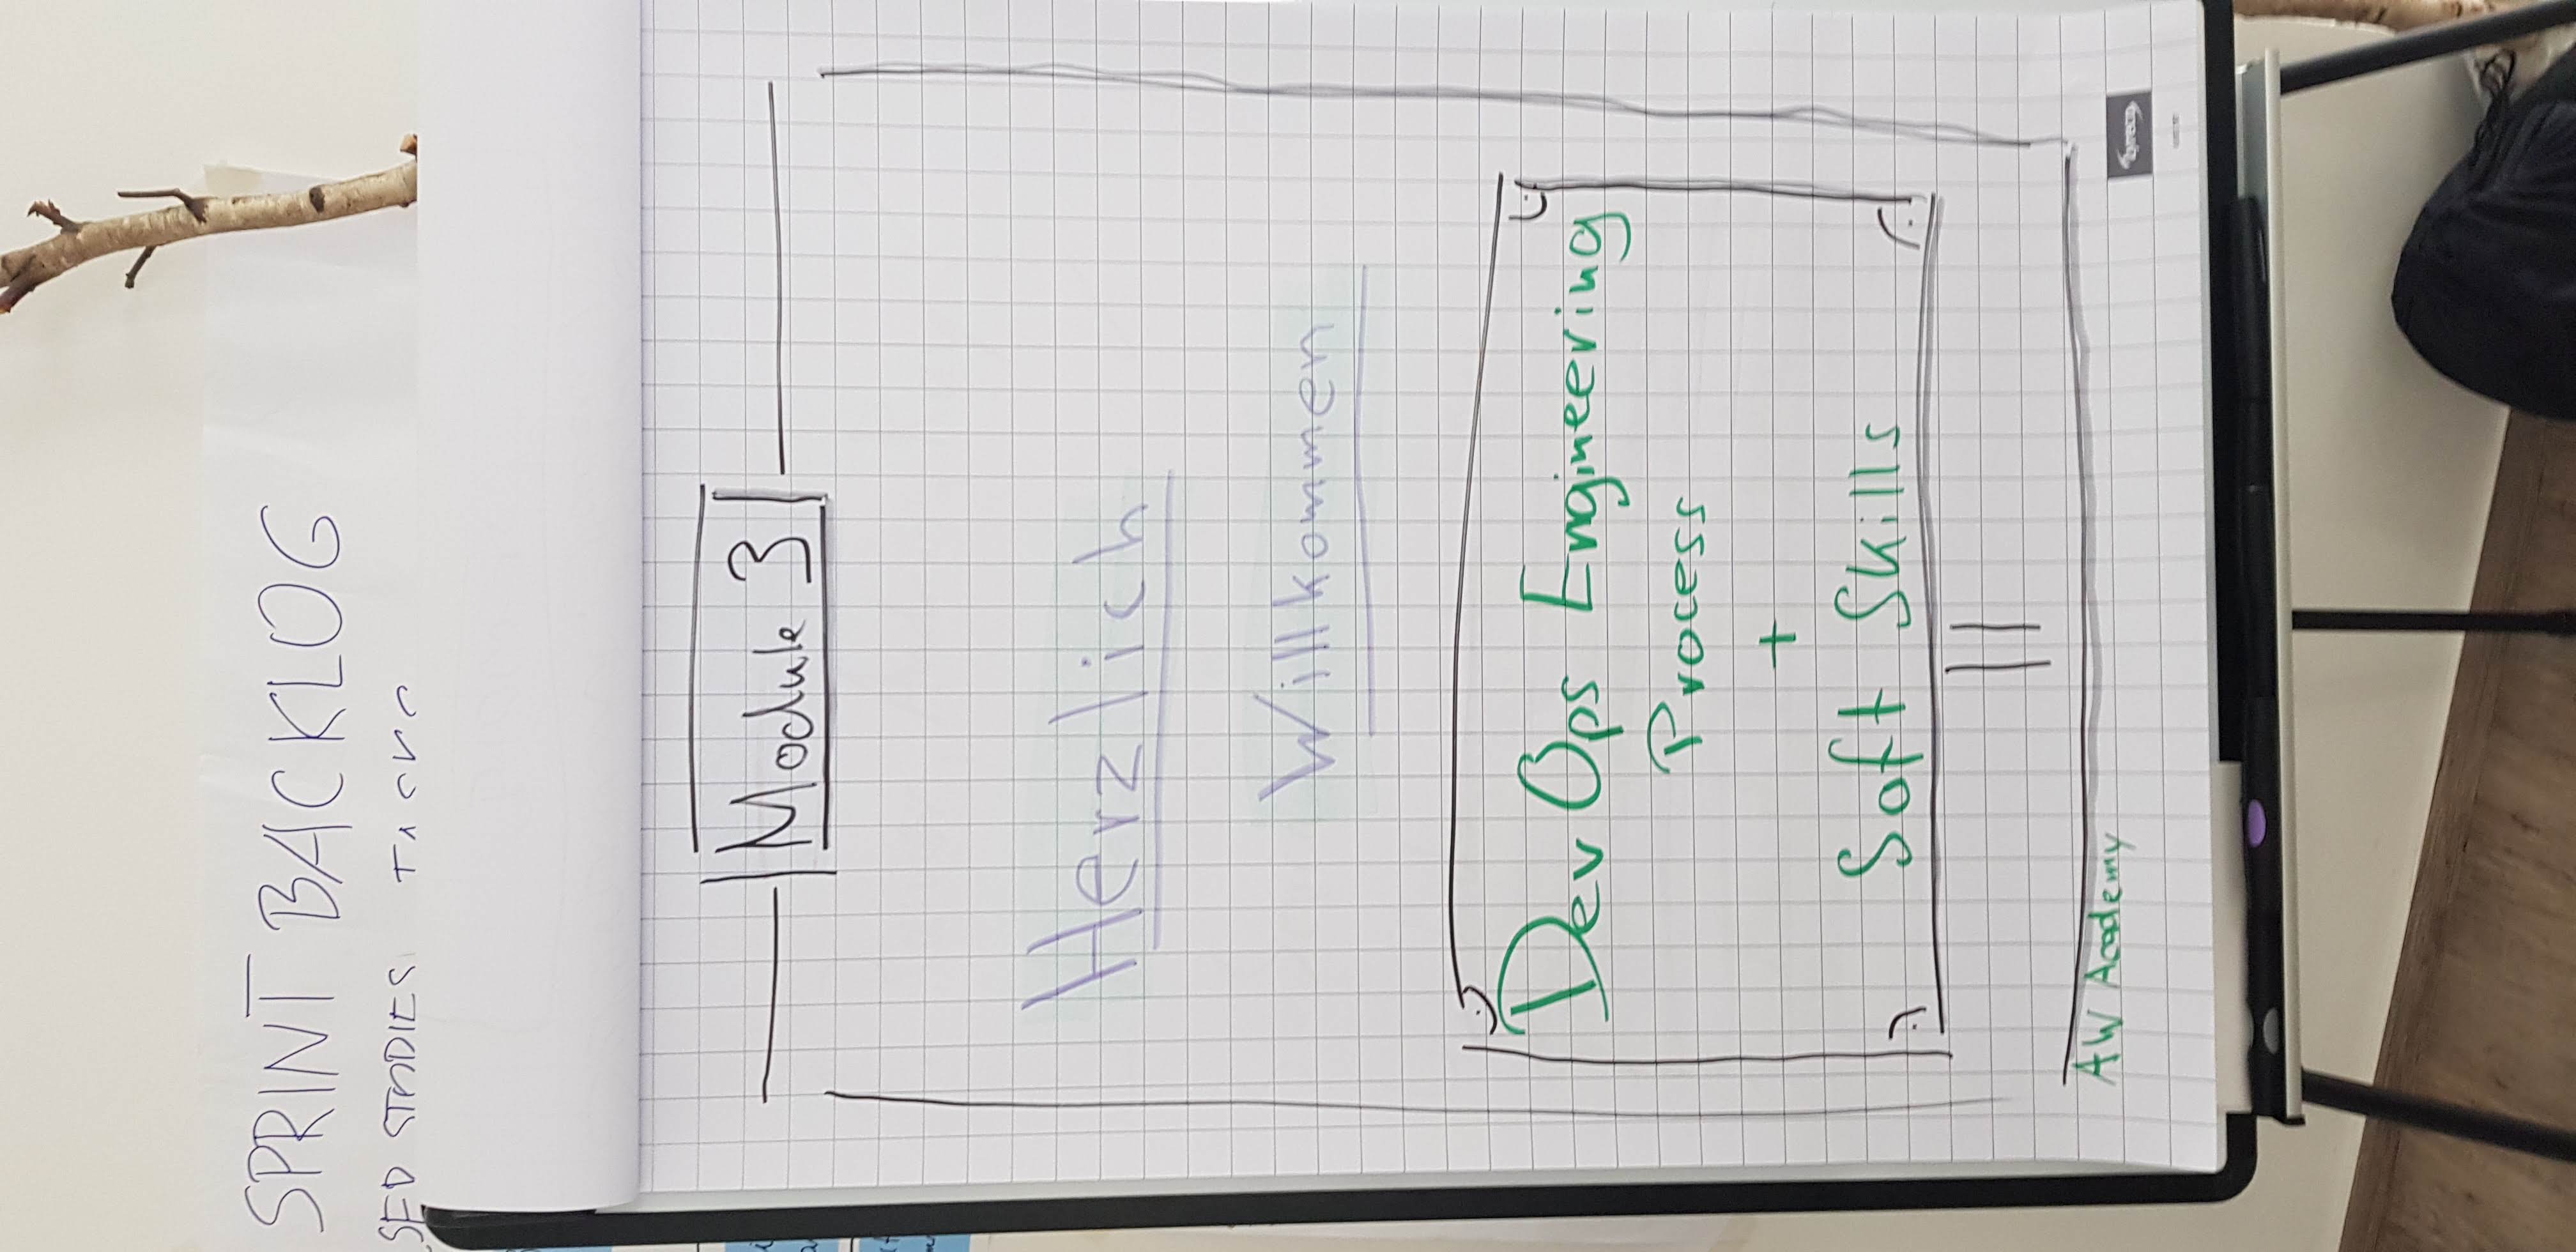 SPRINT BACKLOG
SED STODIES TASKS
Module 3
Herzlich
Willkommen
Dev Ops Engineering
Process
+
Soft Skills
AW Academy
lyreco